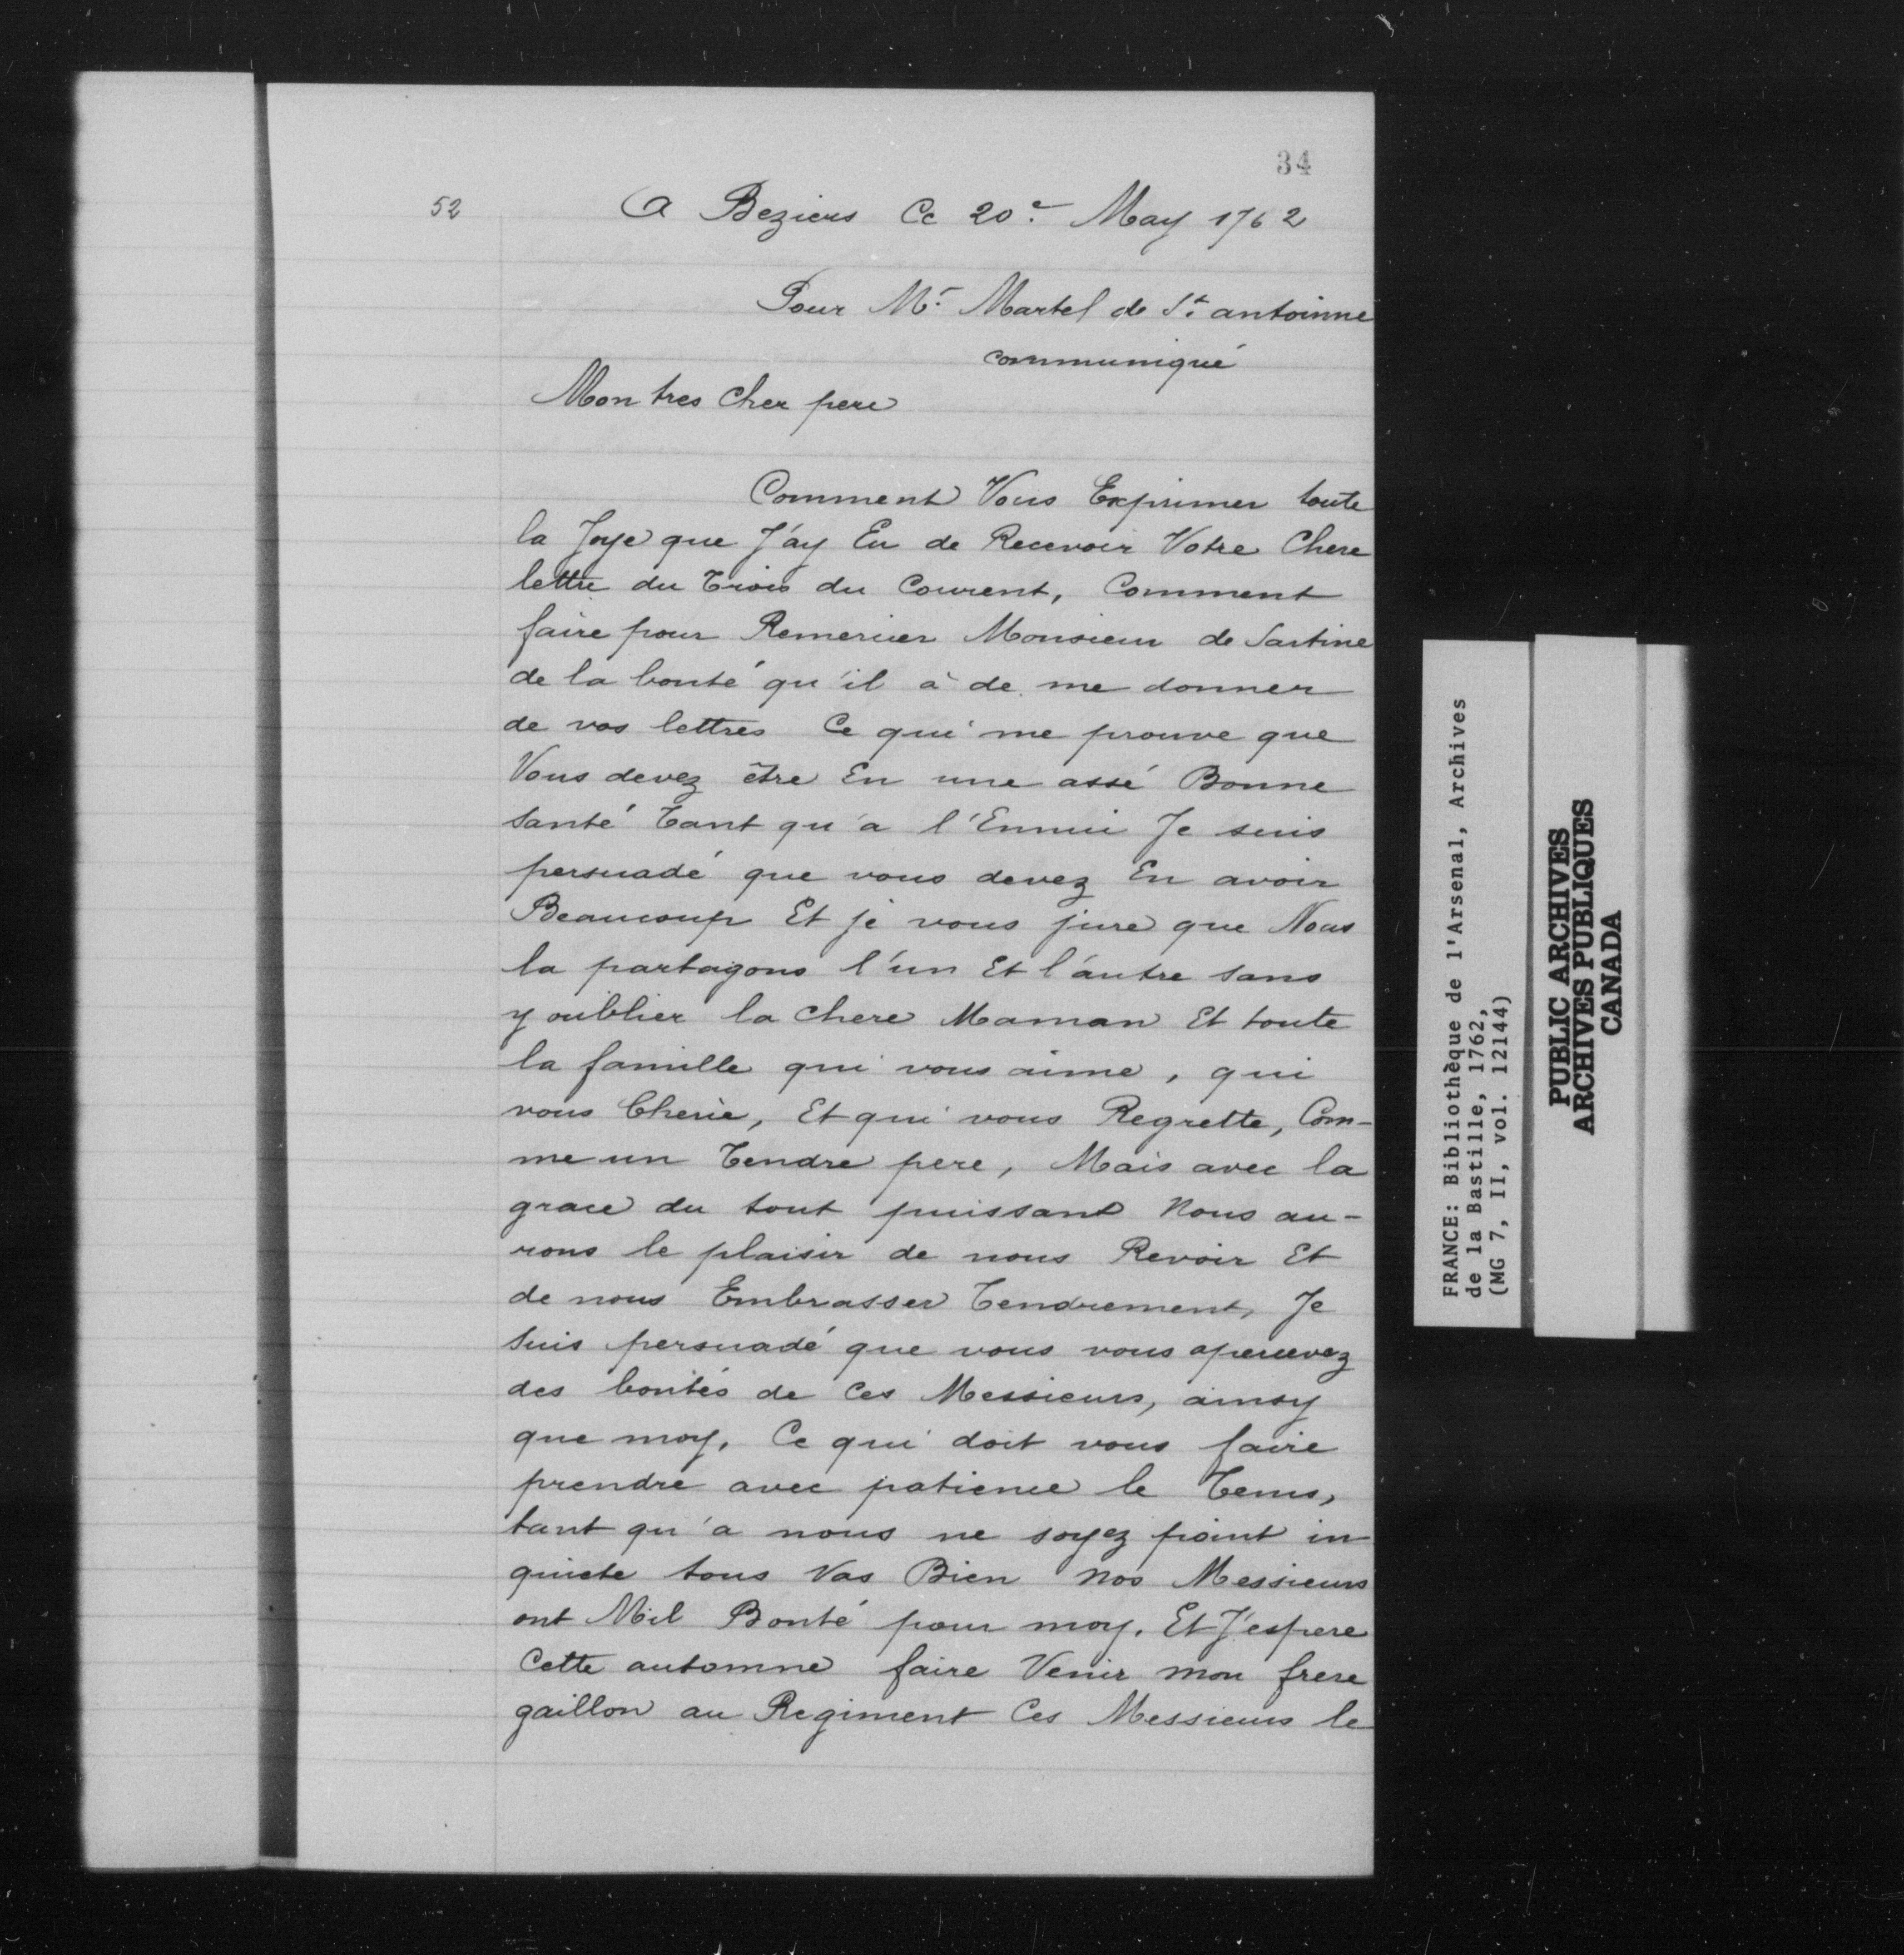 34
52
A Beziers Ce 20e May 1762
Pour Mr Martel de St antoinne
communiqué
Mon tres Cher pere
Comment Vous Exprimer toute
la Joye que J'ay Eu de Recevoir Votre Chere
lettre du Trois du Courent, Comment
faire pour Remercier Monsieur de Sartine
de la bonté qu'il à de me donner
de vos lettres Ce qui me prouve que
Vous devez être En une assé Bonne
santé Tant qu'a l'Ennui Je suis
persuadé que vous devez En avoir
Beaucoup Et je vous jure que Nous
la partagons l'un Et l'autre sans
y oublier la chere Maman Et toute
la famille qui vous aime, qui
vous Cherie, Et qui vous Regrette, Com-
me un Tendre pere, Mais avec la
grace du tout puissant Nous au-
rons le plaisir de nous Revoir Et
de nous Embrasser Tendrement, Je
suis persuadé que vous vous apercevez
des bontés de Ces Messieurs, ainsy
que moy, Ce qui doit vous faire
prendre avec patience le Tems,
tant qu'a nous ne soyez point in
quiete tous Vas Bien nos Messieurs
ont Mil Bonté pour moy. Et J'espere
Cette automne faire Venir mon frere
gaillon au Regiment Ces Messieurs le
FRANCE: Bibliothèque de l'Arsenal, Archives
de la Bastille, 1762,
(MG 7, II, vol. 12144)
PUBLIC ARCHIVES
ARCHIVES PUBLIQUES
CANADA